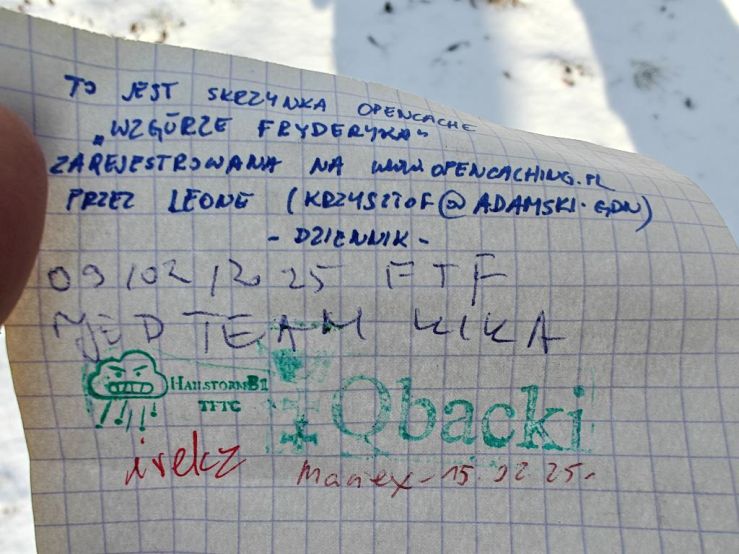 TO JEST SKRZYNKA OPENCACHE
„WZGÓRZE FRYDERYKA"
ZAREJESTROWANA NA WWW.OPENCACHING.PL
PRZEZ LEONE (KRZYSZTOF@ADAMSKI.GDN)
- DZIENNIK -
09/02/2025 FTF
TEAM KIKA
HAILSTORM81
TFTC
Qbacki
irekz
Maniex - 15.02.25r